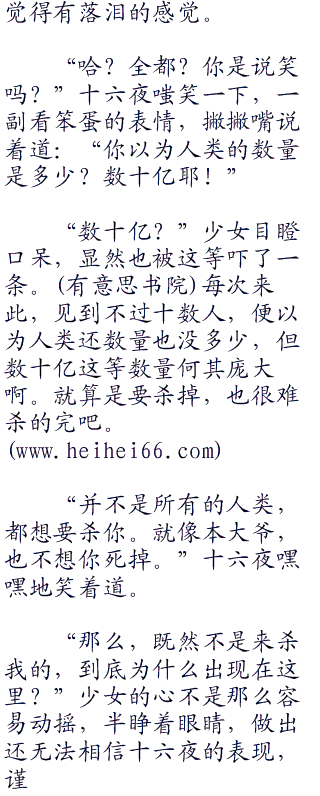 觉得有落泪的感觉。
“哈？全都？你是说笑
吗？”十六夜嗤笑一下，一
副看笨蛋的表情，撇撇嘴说
着道：“你以为人类的数量
是多少？数十亿耶！”
“数十亿？”少女目瞪
口呆，显然也被这等吓了一
条。(有意思书院)每次来
此，见到不过十数人，便以
为人类还数量也没多少，但
数十亿这等数量何其庞大
啊。就算是要杀掉，也很难
杀的完吧。
(www.heihei66.com)
“并不是所有的人类，
都想要杀你。就像本大爷，
也不想你死掉。”十六夜嘿
嘿地笑着道。
“那么，既然不是来杀
我的，到底为什么出现在这
里？”少女的心不是那么容
易动摇，半睁着眼睛，做出
还无法相信十六夜的表现，
谨